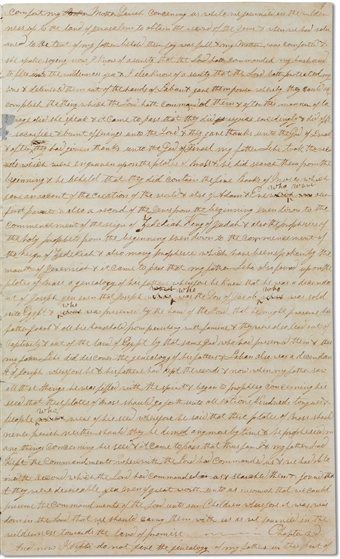 comfort my Mother Sariah concerning us while we journied in the wilder
ness up to the land of Jerusalem to obtain the record of the Jews & when we had retur
ned to the tent of my father behold their joy was full & my Mother was comforted &
she spake saying now I know of a surety that the Lord hath commanded my husband
to flee into the wilderness yea & I also know of a surety that the Lord hath protected my
sons & delivered them out of the hands of Laban & gave them power whereby they could ac
complish the thing which the Lord hath commanded them & after this manner of la
nguage did she speak & it came to pass that they did rejoice exceedingly & did offer
sacrafice & burnt offerings unto the Lord & they gave thanks unto the God of Israel
& after they had given thanks unto the God of Israel my father Lehi took the rec
ords which were engraven upon the plates of brass & he did search them from the
beginning & he beheld that they did contain the five books of Moses which
gave an account of the creation of the world & also of Adam & Eve who were our
first parents & also a record of the Jews from the beginning even down to the
commencement of the reign of Zedekiah King of Judah & also the prophecies of
the holy prophets from the beginning even down to the commencement of
the reign of Zedekiah & also many prophecies which have been spoken by the
mouth of Jeremiah & it came to pass that my father Lehi also found upon the
plates of brass a genealogy of his fathers wherefore he knew that he was a decenda
nt of Joseph yea even that Joseph who was the Son of Jacob who was sold
into Egypt & who was preserved by the hand of the Lord that he might preserve his
father Jacob & all his household from perishing with famine & they were also led out of
captivity & out of the land of Egypt by that same God who had preserved them & thus
my father Lehi did discover the genealogy of his fathers & Laban also was a decendant
of Joseph wherefore he & his fathers had kept the records & now when my father saw
all these things he was filled with the spirit & began to prophecy concerning his
seed that these plates of brass should go forth unto all nations kindreds tongues &
people who were of his seed wherefore he said that these plates of brass should
never perish neither should they be dimed any more by time & he prophecied m
any things concerning his seed & it came to pass that thus far I & my father had
kept the commandments wherewith the Lord had commanded us & we had obta
ined the record which the Lord had commanded us & searched them & found tha
t they were desirable yea even of great worth unto us insomuch that we could
preserve the commandments of the Lord unto our children wherefore it was wis
dom in the Lord that we should carry them with us as we journied in the
wilderness towards the land of promise Chapter
And now I Nephi do not give the genealogy of my fathers in this part of